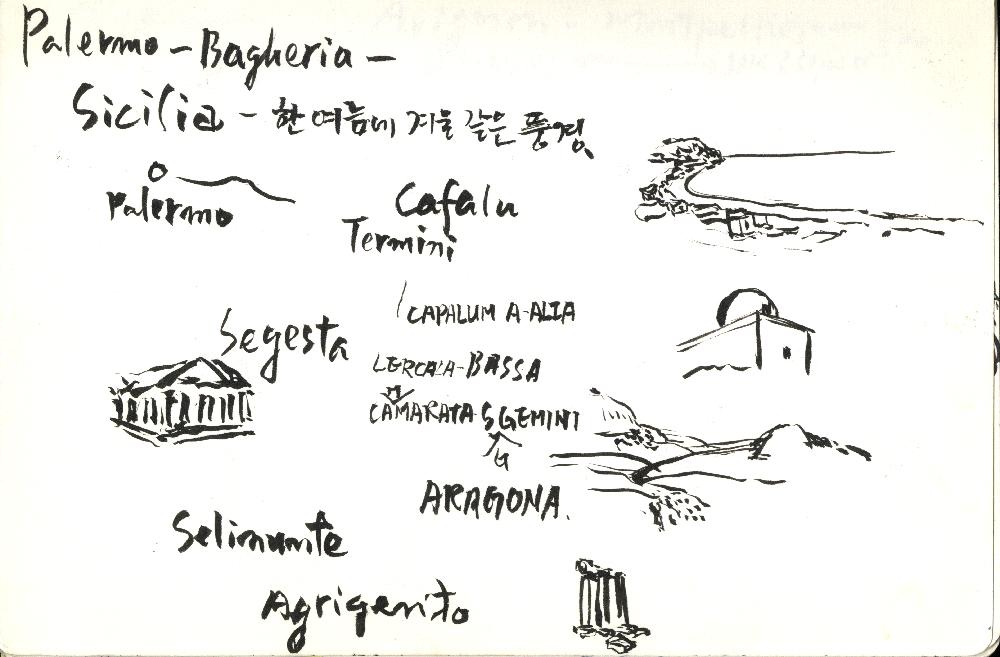 Palermo - Bagheria -
Sicilia - 한 여름에 겨울 같은 풍경.
Palermo
Cafalu
Termini
CAPALUM A-ALIA
Segesta
LERCALA-BASSA
CAMARATA S GEMINI
ARAGONA.
Selinunte
Agrigento